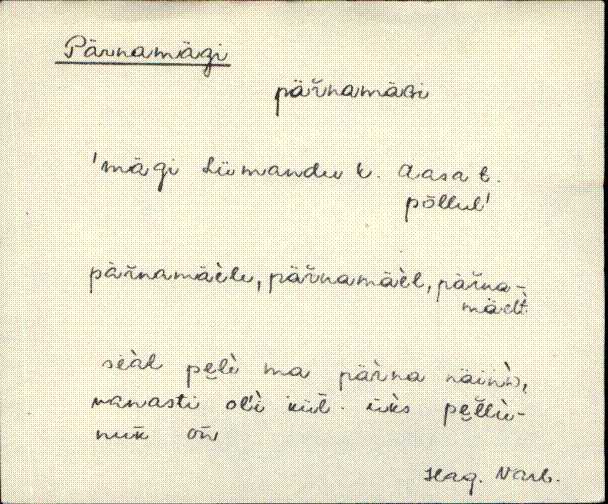 Pärnamägi
pär̆namäGi
'mägi Liimandu k. Aasa t.
põllul'
pär̆namäèle, pär̆namäèl, pär̆na-
mäelt.
seàl pelè ma pär̆na näinD,
vanasti ol'i üks
nuk on
Hag. Varb.